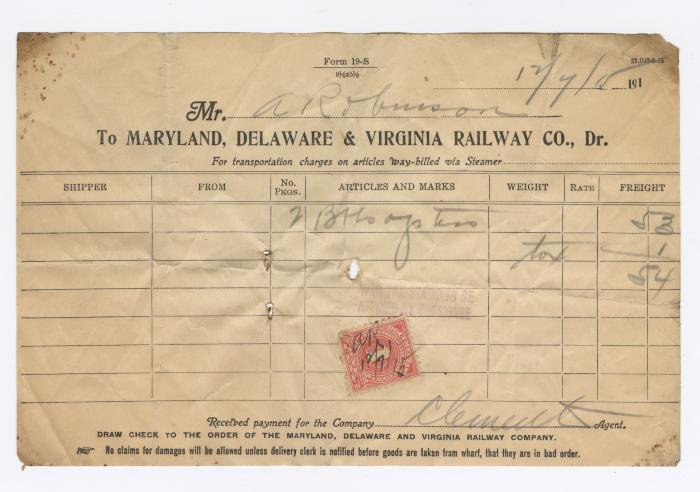 Form 19-S
8½x5½
25,000-6-15
12/7/15 191
Mr. A Robinson
To MARYLAND, DELAWARE & VIRGINIA RAILWAY CO., Dr.
For transportation charges on articles way-billed via Steamer
SHIPPER FROM No. PKGS. ARTICLES AND MARKS WEIGHT RATE FREIGHT
2 Bbls oysters 53
tax 1
54
WAR TAX STAMP TO BE
AFFIXED BY CONSIGNEE
AR
12/7/15
Received payment for the Company Clement Agent.
DRAW CHECK TO THE ORDER OF THE MARYLAND, DELAWARE AND VIRGINIA RAILWAY COMPANY.
No claims for damages will be allowed unless delivery clerk is notified before goods are taken from wharf, that they are in bad order.